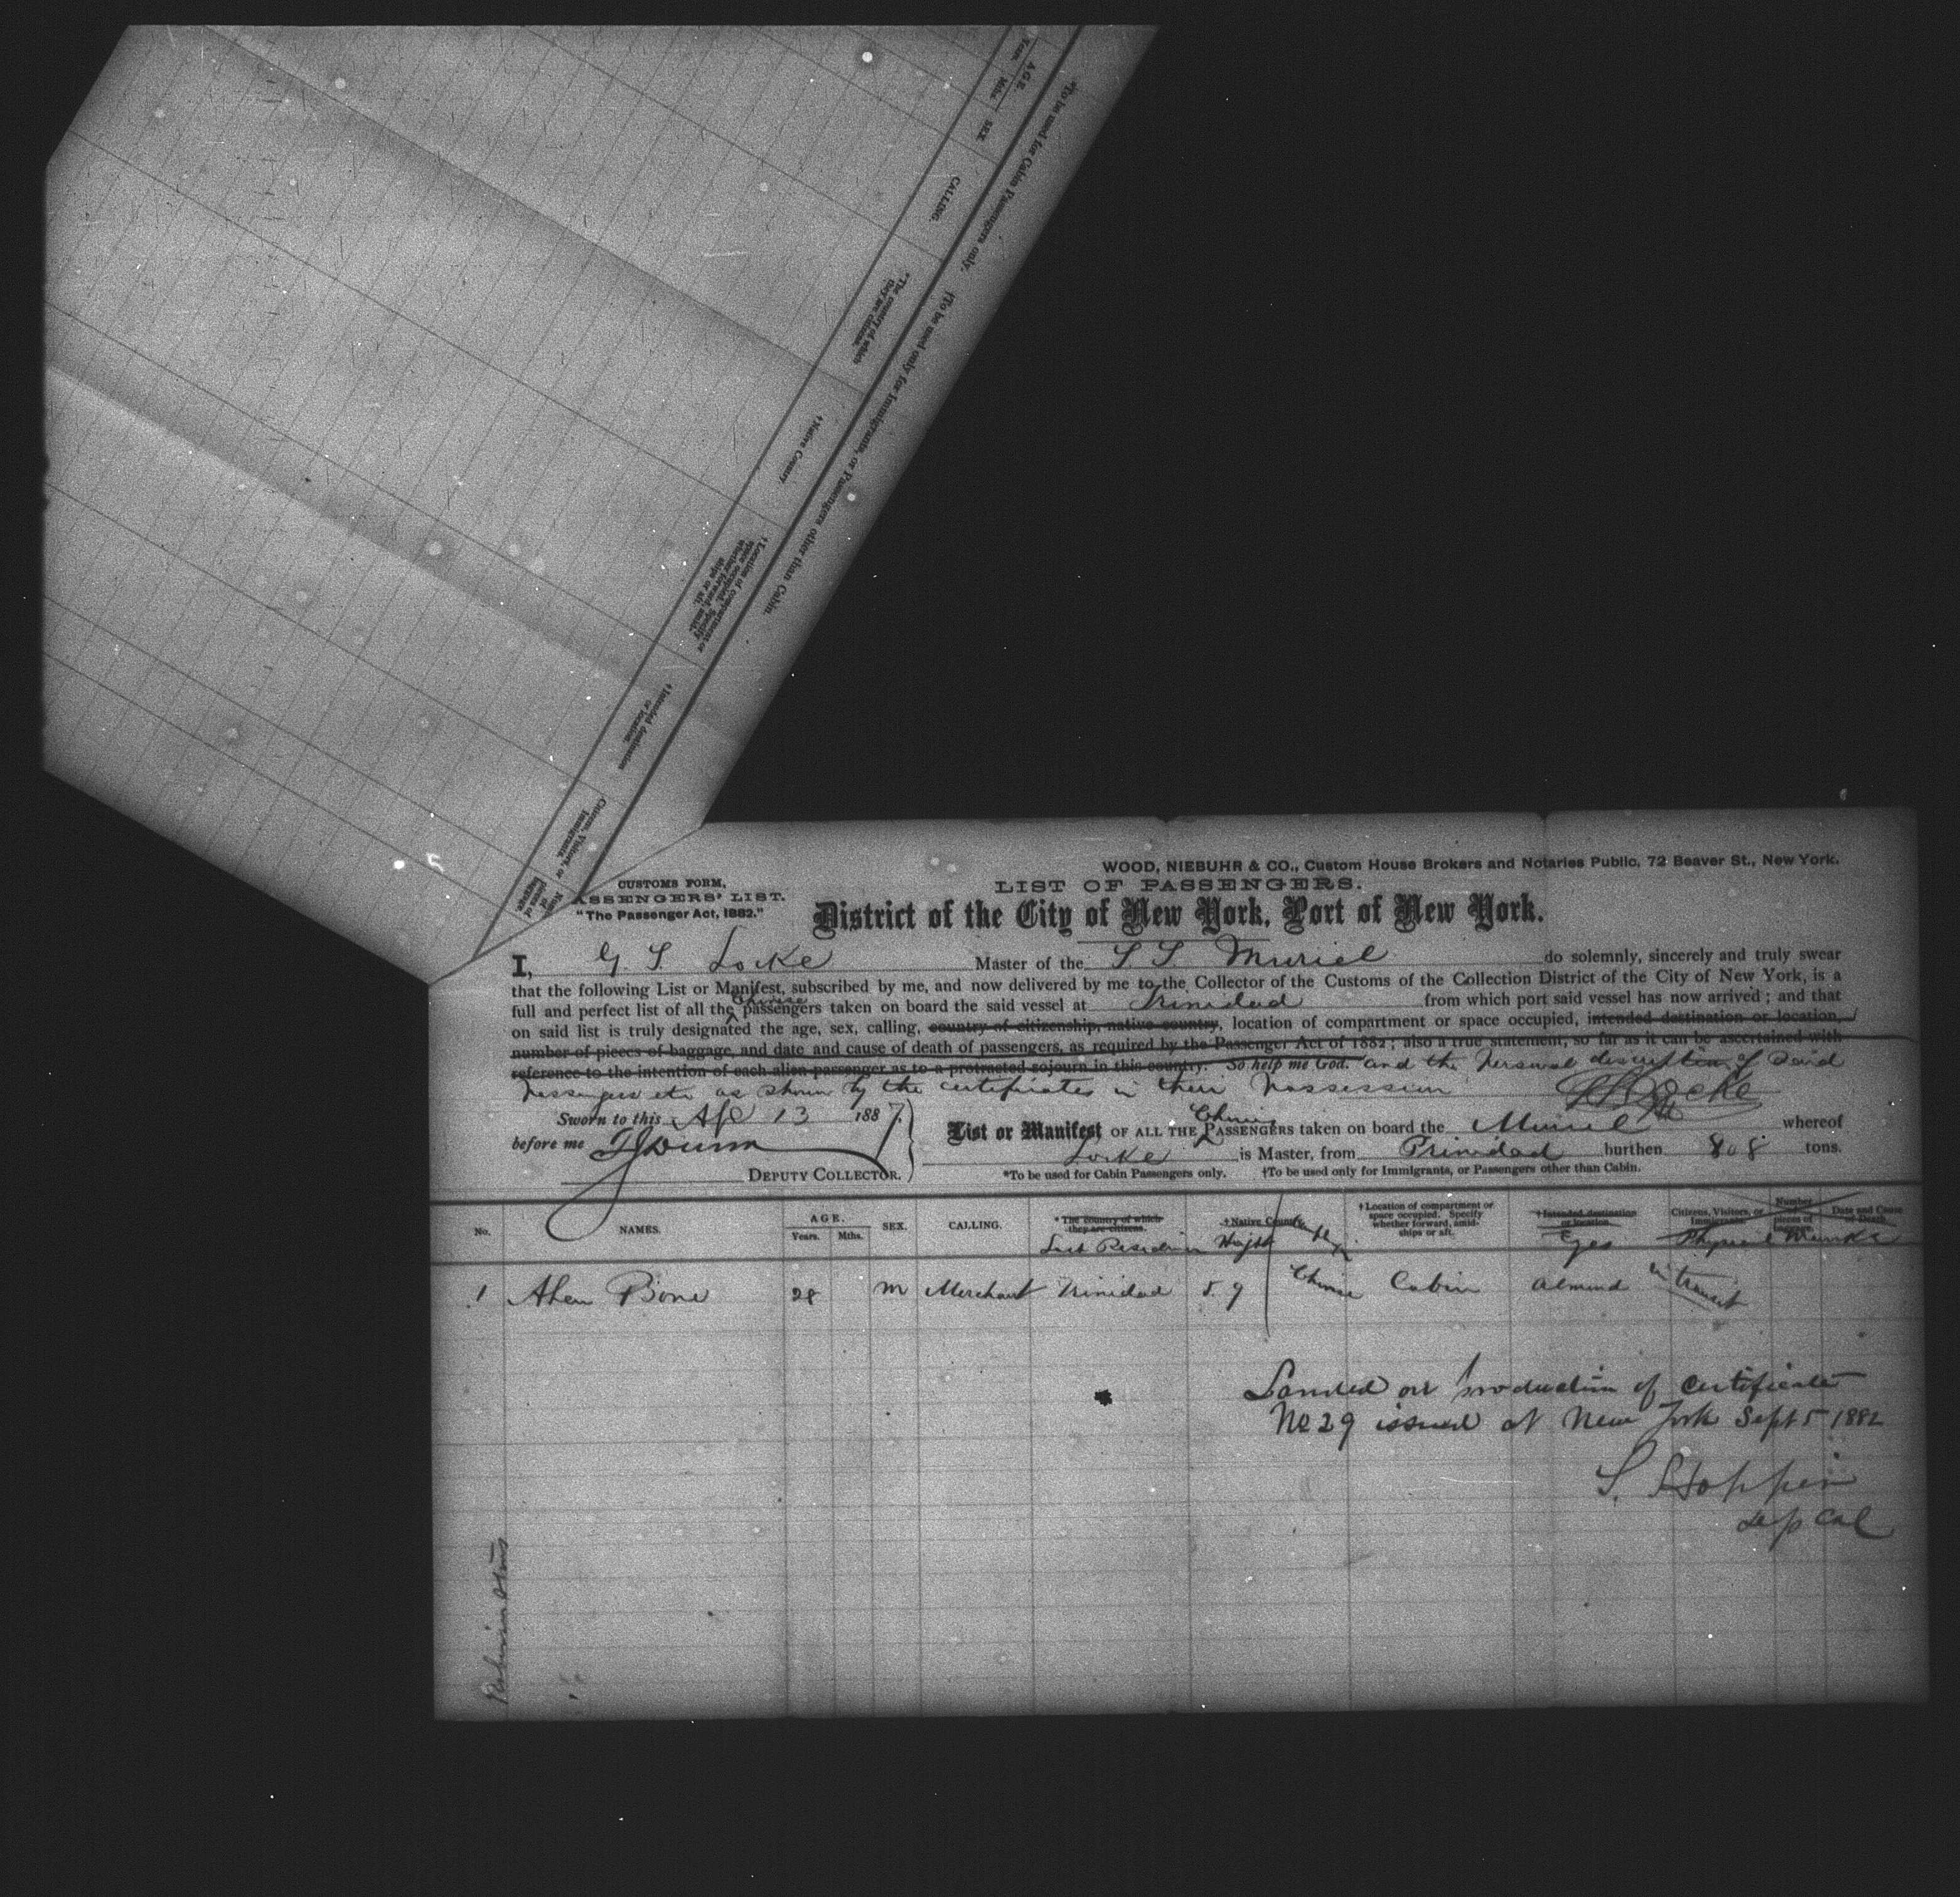 Years.
Mths.
AGE.
SEX.
CALLING.
*The country of which
they are citizens.
†Native Country.
†Location of compartment or
space occupied. Specify
whether forward, amid-
ships or aft.
†Intended destination
or location.
Citizens, Visitors, or
Immigrants.
Number
of
pieces of
baggage.
*To be used for Cabin Passengers only.
†To be used only for Immigrants, or Passengers other than Cabin.
WOOD, NIEBUHR & CO., Custom House Brokers and Notaries Public, 72 Beaver St., New York.
CUSTOMS FORM,
ASSENGERS' LIST.
"The Passenger Act, 1882."
LIST OF PASSENGERS.
District of the City of New York, Port of New York.
I, G. S. Locke Master of the S S Muriel do solemnly, sincerely and truly swear
that the following List or Manifest, subscribed by me, and now delivered by me to the Collector of the Customs of the Collection District of the City of New York, is a
full and perfect list of all the Chinese passengers taken on board the said vessel at Trinidad from which port said vessel has now arrived; and that
on said list is truly designated the age, sex, calling, country of citizenship, native country, location of compartment or space occupied, intended destination or location,
number of pieces of baggage, and date and cause of death of passengers, as required by the Passenger Act of 1882; also a true statement, so far as it can be ascertained with
reference to the intention of each alien passenger as to a protracted sojourn in this country. So help me God. and the personal description of said
passengers etc as shown by the certificates in their possession G S Locke
Sworn to this Apl 13 1887.
before me
DEPUTY COLLECTOR.
List or Manifest OF ALL THE Chinese PASSENGERS taken on board the Muriel whereof
Locke is Master, from Trinidad burthen 808 tons.
*To be used for Cabin Passengers only. †To be used only for Immigrants, or Passengers other than Cabin.
No. NAMES. AGE. Years. Mths. SEX. CALLING. *The country of which they are citizens. Last Residence †Native Country. Height †Location of compartment or space occupied. Specify whether forward, amid-ships or aft. †Intended destination or location. Eyes Citizens, Visitors, or Immigrants. Number of pieces of baggage. Date and Cause of Death. Physical Marks
1 Ahen Bone 28 M Merchant Trinidad 5.9 Chinese Cabin almond in transit
Landed on production of certificate
No 29 issued at New York Sept 5 1882
S. Hoppin
Dep Col